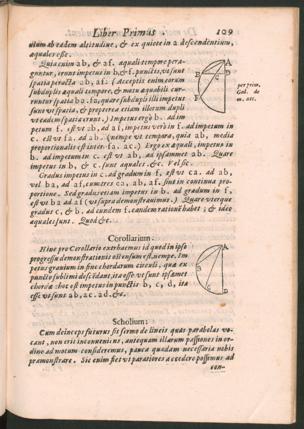 Liber Primus. 129
uitum ab eadem altitudine, & ex quiete in a descendentium,
aquales esse.
Quia enim ab, & af. aquali tempore pera-
guntur, erunt impetus in b, & f, punctis, vt sunt
spatia ipsa ab, af: (Acceptis enim eorum
subduplis aquali tempore, & motu aquabili cur-
runtur spatia ba, fa; quare subdupli illi impetus
sunt vt spatia, & propterea etiam illorum dupli
vt eadem spatia erunt.) Impetus ergò b. ad im
petum f. est vt ab, ad af, impetus verò in f. ad impetum in
c. est vt fa. ad ab. (nempe vt tempora, quia ab, media
proportionalis est inter fa. ac.) Ergo ex aquali, impetus in
b. ad impetum in c. est vt ab, ad ipsammet ab. Quare
impetus in b, & c. sunt aquales. &c. Vel sic.
Gradus impetus in c. ad gradum in b, est vt ca. ad ab,
vel ba, ad af, cum tres ca, ab, af. sint in continua pro-
portione. Sed gradus etiam impetus in b. ad gradum in f,
est vt ba ad af (vt supra demonstrauimus.) Quare vterque
gradus c, & b. ad eundem f. eandem rationẽ habet; & ideo
aquales sunt. Quod &c.
A
F
B
per prim.
Gal. de
m. acc.
Corollarium.
Hinc pro Corollario exerbamus id quod in ipso
progressu demonstrationis ostensum est nempe. Im
petus graduum in fine chordarum circuli, qua ex
puncto sublimi descẽdant, ita esse vt sunt ipsamet
chorda: hoc est impetus in punctis b, c, d, ita
esse vt sunt ab, ac. ad. &c.
A
Scholium:
Cum deinceps futurus sit sermo de lineis quas parabolas vo-
cant, non erit inconueniens, antequam illarum passiones in or-
dine ad motum consideremus, pauca quadam necessaria nobis
pramonstrare. Sic enim fiet vt paratiores accedere possimus ad
con-